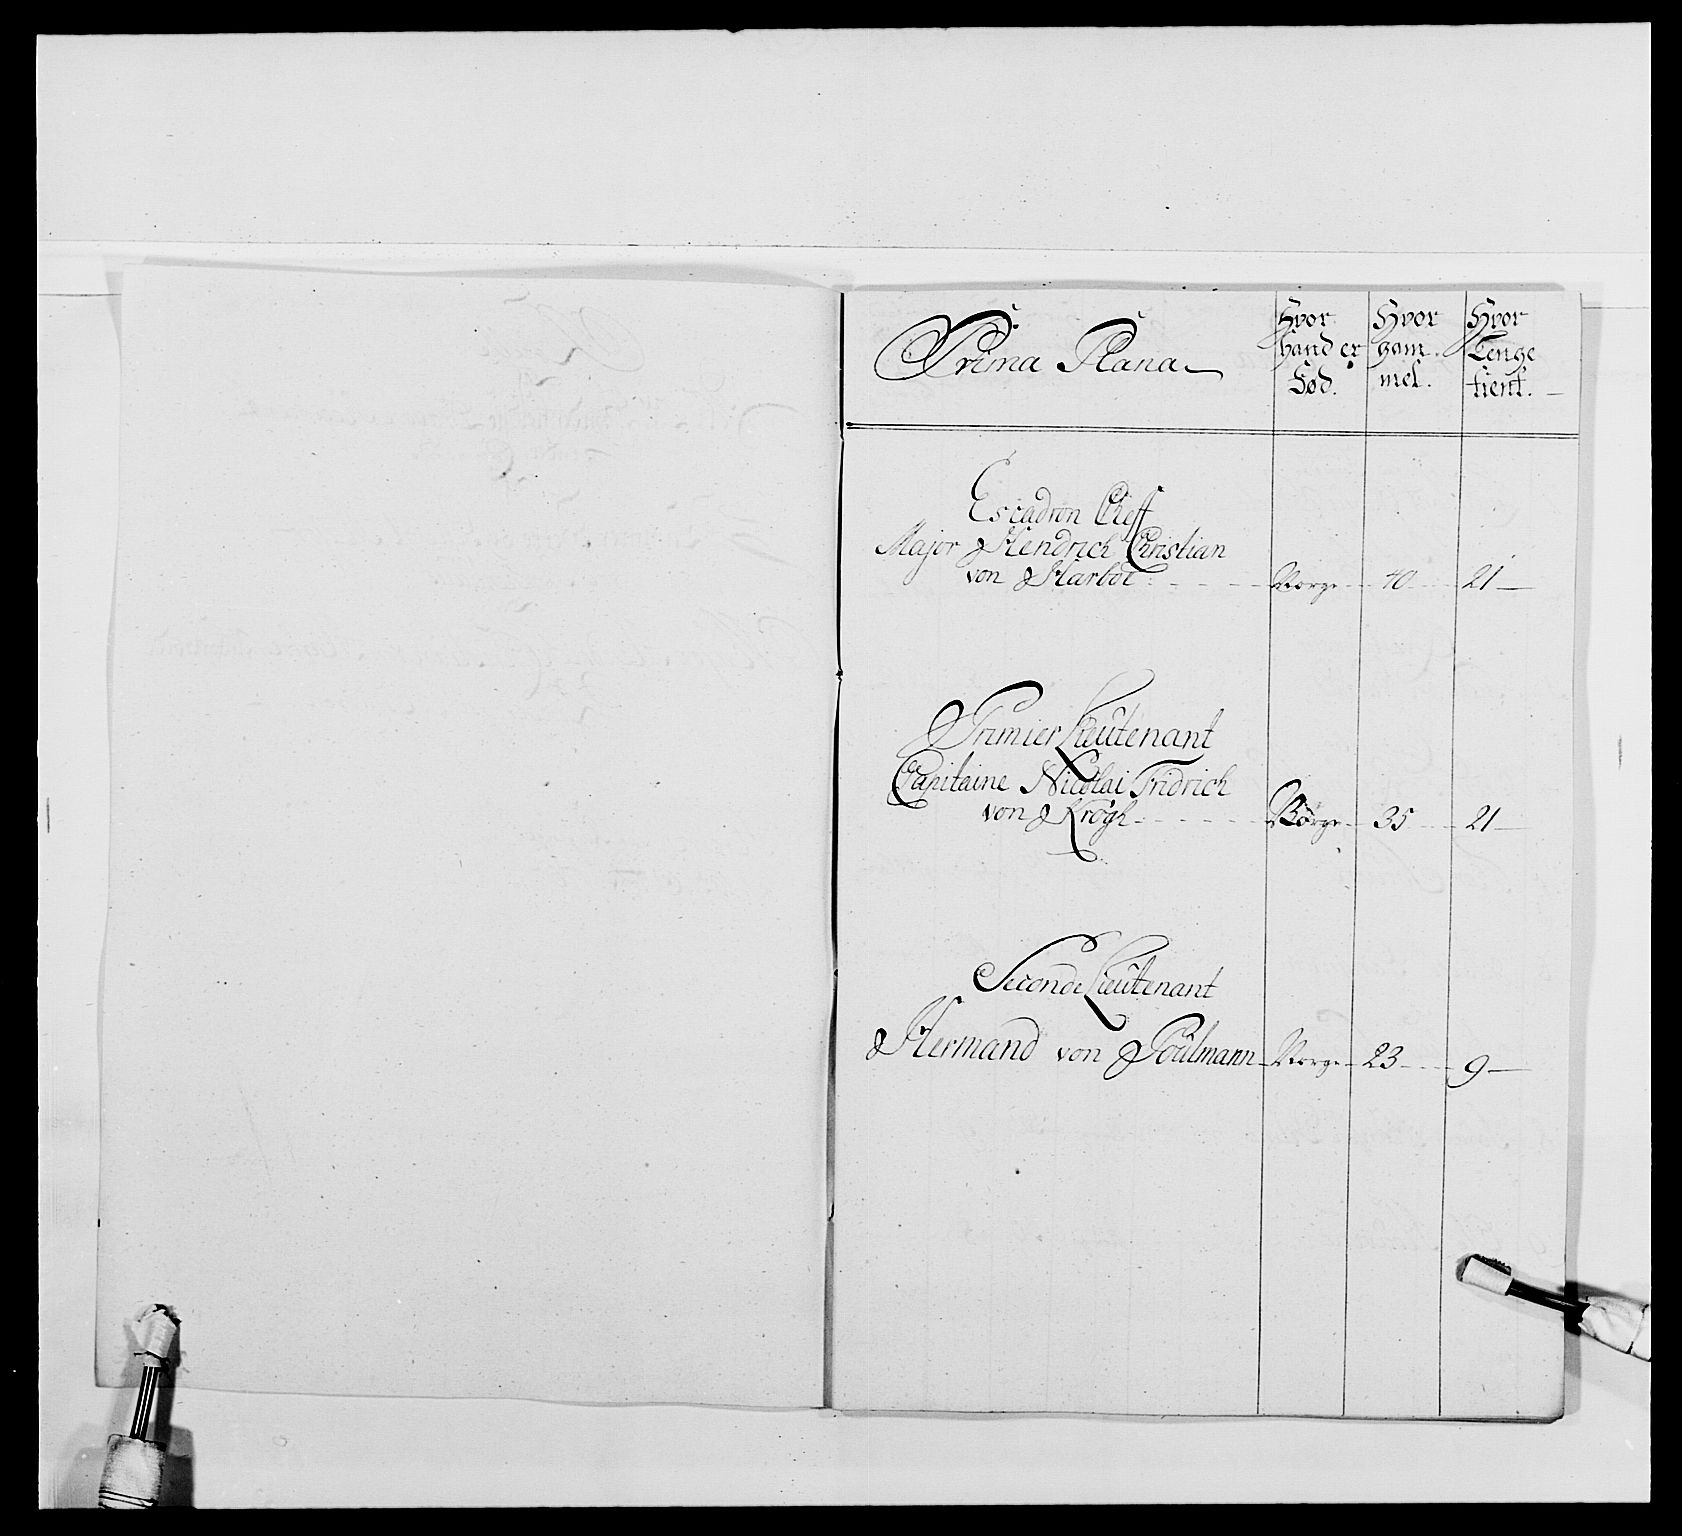 Prima Plana
Hvor hand er Fød.
Hvor gam- mel.
Hvor Lenge tient.
Escadron Cheff
Major Hendrich Christian
von Harboe Norge 40 21
Primier Lieutenant
Capitaine Nicolai Fridrich
von Krogh Norge 35 21
Seconde Lieutenant
Hermand von Poulmann Norge 23 9